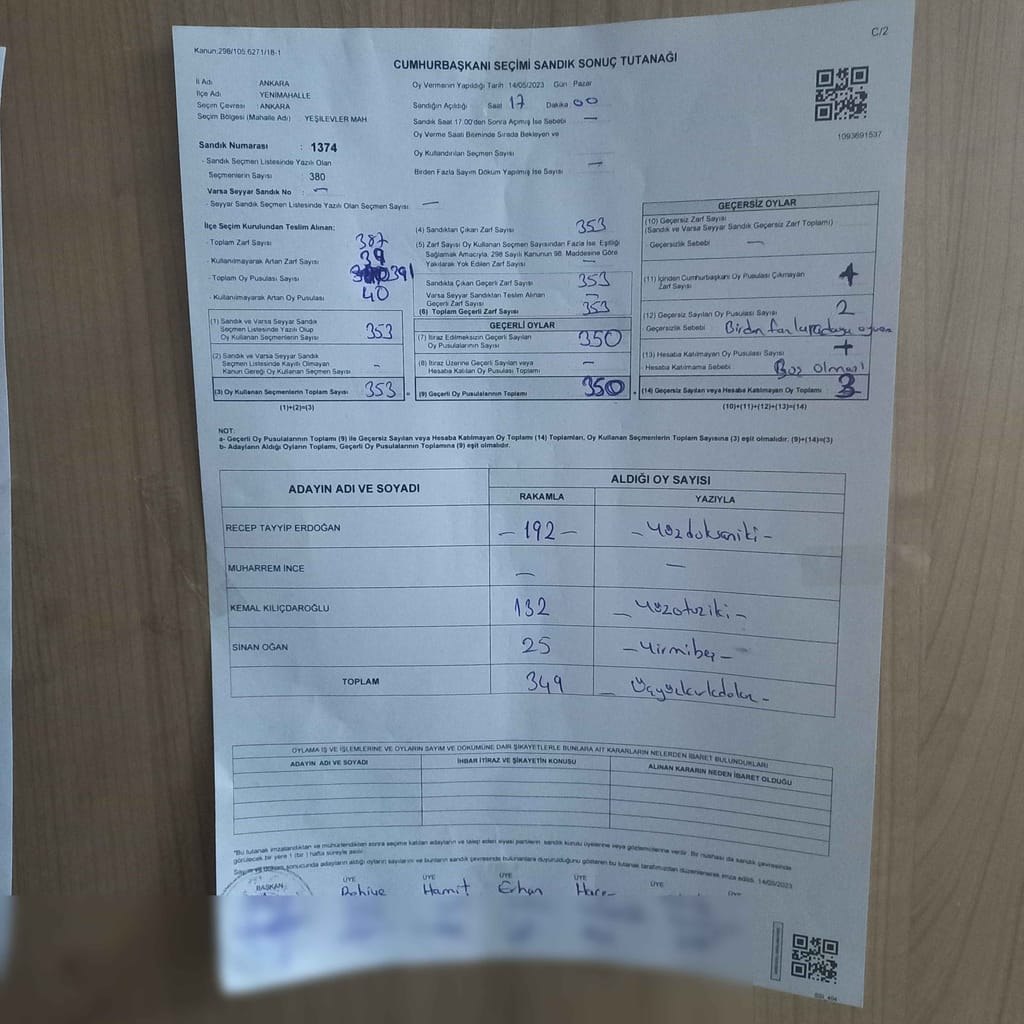 C/2
Kanun:298/105,6271/18-1
CUMHURBAŞKANI SEÇİMİ SANDIK SONUÇ TUTANAĞI
İl Adı ANKARA
İlçe Adı YENİMAHALLE
Seçim Çevresi : ANKARA
Seçim Bölgesi (Mahalle Adı) YEŞİLEVLER MAH
Oy Vermenin Yapıldığı Tarih :14/05/2023 Gün : Pazar
Sandığın Açıldığı Saat 17 Dakika 00
Sandık Saat 17.00'den Sonra Açılmış İse Sebebi —
Oy Verme Saati Bitiminde Sırada Bekleyen ve
Oy Kullandırılan Seçmen Sayısı
Birden Fazla Sayım Döküm Yapılmış İse Sayısı —
1093691537
Sandık Numarası : 1374
- Sandık Seçmen Listesinde Yazılı Olan
Seçmenlerin Sayısı : 380
Varsa Seyyar Sandık No : —
- Seyyar Sandık Seçmen Listesinde Yazılı Olan Seçmen Sayısı —
İlçe Seçim Kurulundan Teslim Alınan:
- Toplam Zarf Sayısı 387
- Kullanılmayarak Artan Zarf Sayısı
- Toplam Oy Pusulası Sayısı 391
- Kullanılmayarak Artan Oy Pusulası 40
(1) Sandık ve Varsa Seyyar Sandık
Seçmen Listesinde Yazılı Olup
Oy Kullanan Seçmenlerin Sayısı 353
(2) Sandık ve Varsa Seyyar Sandık
Seçmen Listesinde Kayıtlı Olmayan
Kanun Gereği Oy Kullanan Seçmen Sayısı -
(3) Oy Kullanan Seçmenlerin Toplam Sayısı 353
(1)+(2)=(3)
(4) Sandıktan Çıkan Zarf Sayısı 353
(5) Zarf Sayısı Oy Kullanan Seçmen Sayısından Fazla İse, Eşitliği
Sağlamak Amacıyla, 298 Sayılı Kanunun 98. Maddesine Göre
Yakılarak Yok Edilen Zarf Sayısı —
Sandıkta Çıkan Geçerli Zarf Sayısı 353
Varsa Seyyar Sandıktan Teslim Alınan
Geçerli Zarf Sayısı —
(6) Toplam Geçerli Zarf Sayısı 353
GEÇERLİ OYLAR
(7) İtiraz Edilmeksizin Geçerli Sayılan
Oy Pusulalarının Sayısı 350
(8) İtiraz Üzerine Geçerli Sayılan veya
Hesaba Katılan Oy Pusulası Toplamı —
(9) Geçerli Oy Pusulalarının Toplamı 350
GEÇERSİZ OYLAR
(10) Geçersiz Zarf Sayısı
(Sandık ve Varsa Seyyar Sandık Geçersiz Zarf Toplamı)
- Geçersizlik Sebebi —
(11) İçinden Cumhurbaşkanı Oy Pusulası Çıkmayan
Zarf Sayısı
(12) Geçersiz Sayılan Oy Pusulası Sayısı 2
- Geçersizlik Sebebi Birden fazla
(13) Hesaba Katılmayan Oy Pusulası Sayısı
- Hesaba Katılmama Sebebi Boş olması
(14) Geçersiz Sayılan veya Hesaba Katılmayan Oy Toplamı 3
(10)+(11)+(12)+(13)=(14)
NOT:
a- Geçerli Oy Pusulalarının Toplamı (9) ile Geçersiz Sayılan veya Hesaba Katılmayan Oy Toplamı (14) Toplamları, Oy Kullanan Seçmenlerin Toplam Sayısına (3) eşit olmalıdır. (9)+(14)=(3)
b- Adayların Aldığı Oyların Toplamı, Geçerli Oy Pusulalarının Toplamına (9) eşit olmalıdır.
ADAYIN ADI VE SOYADI ALDIĞI OY SAYISI
RAKAMLA YAZIYLA
RECEP TAYYİP ERDOĞAN —192— —Yüzdoksaniki—
MUHARREM İNCE — —
KEMAL KILIÇDAROĞLU 132 —Yüzotuziki—
SİNAN OĞAN 25 —Yirmibeş—
TOPLAM 349 —
OYLAMA İŞ VE İŞLEMLERİNE VE OYLARIN SAYIM VE DÖKÜMÜNE DAİR ŞİKAYETLERLE BUNLARA AİT KARARLARIN NELERDEN İBARET BULUNDUKLARI
ADAYIN ADI VE SOYADI İHBAR İTİRAZ VE ŞİKAYETİN KONUSU ALINAN KARARIN NEDEN İBARET OLDUĞU
*Bu tutanak imzalandıktan ve mühürlendikten sonra seçime katılan adayların ve talep eden siyasi partilerin sandık kurulu üyelerine veya gözlemcilerine verilir. Bir nüshası da sandık çevresinde
görülecek bir yere 1 (bir) hafta süreyle asılır.
Sayım ve döküm sonucunda adayların aldığı oyların sayılarını ve bunların sandık çevresinde bulunanlara duyurulduğunu gösteren bu tutanak tarafımızdan düzenlenerek imza edildi. 14/05/2023
BAŞKAN ÜYE ÜYE ÜYE ÜYE ÜYE
Hamit Erhan